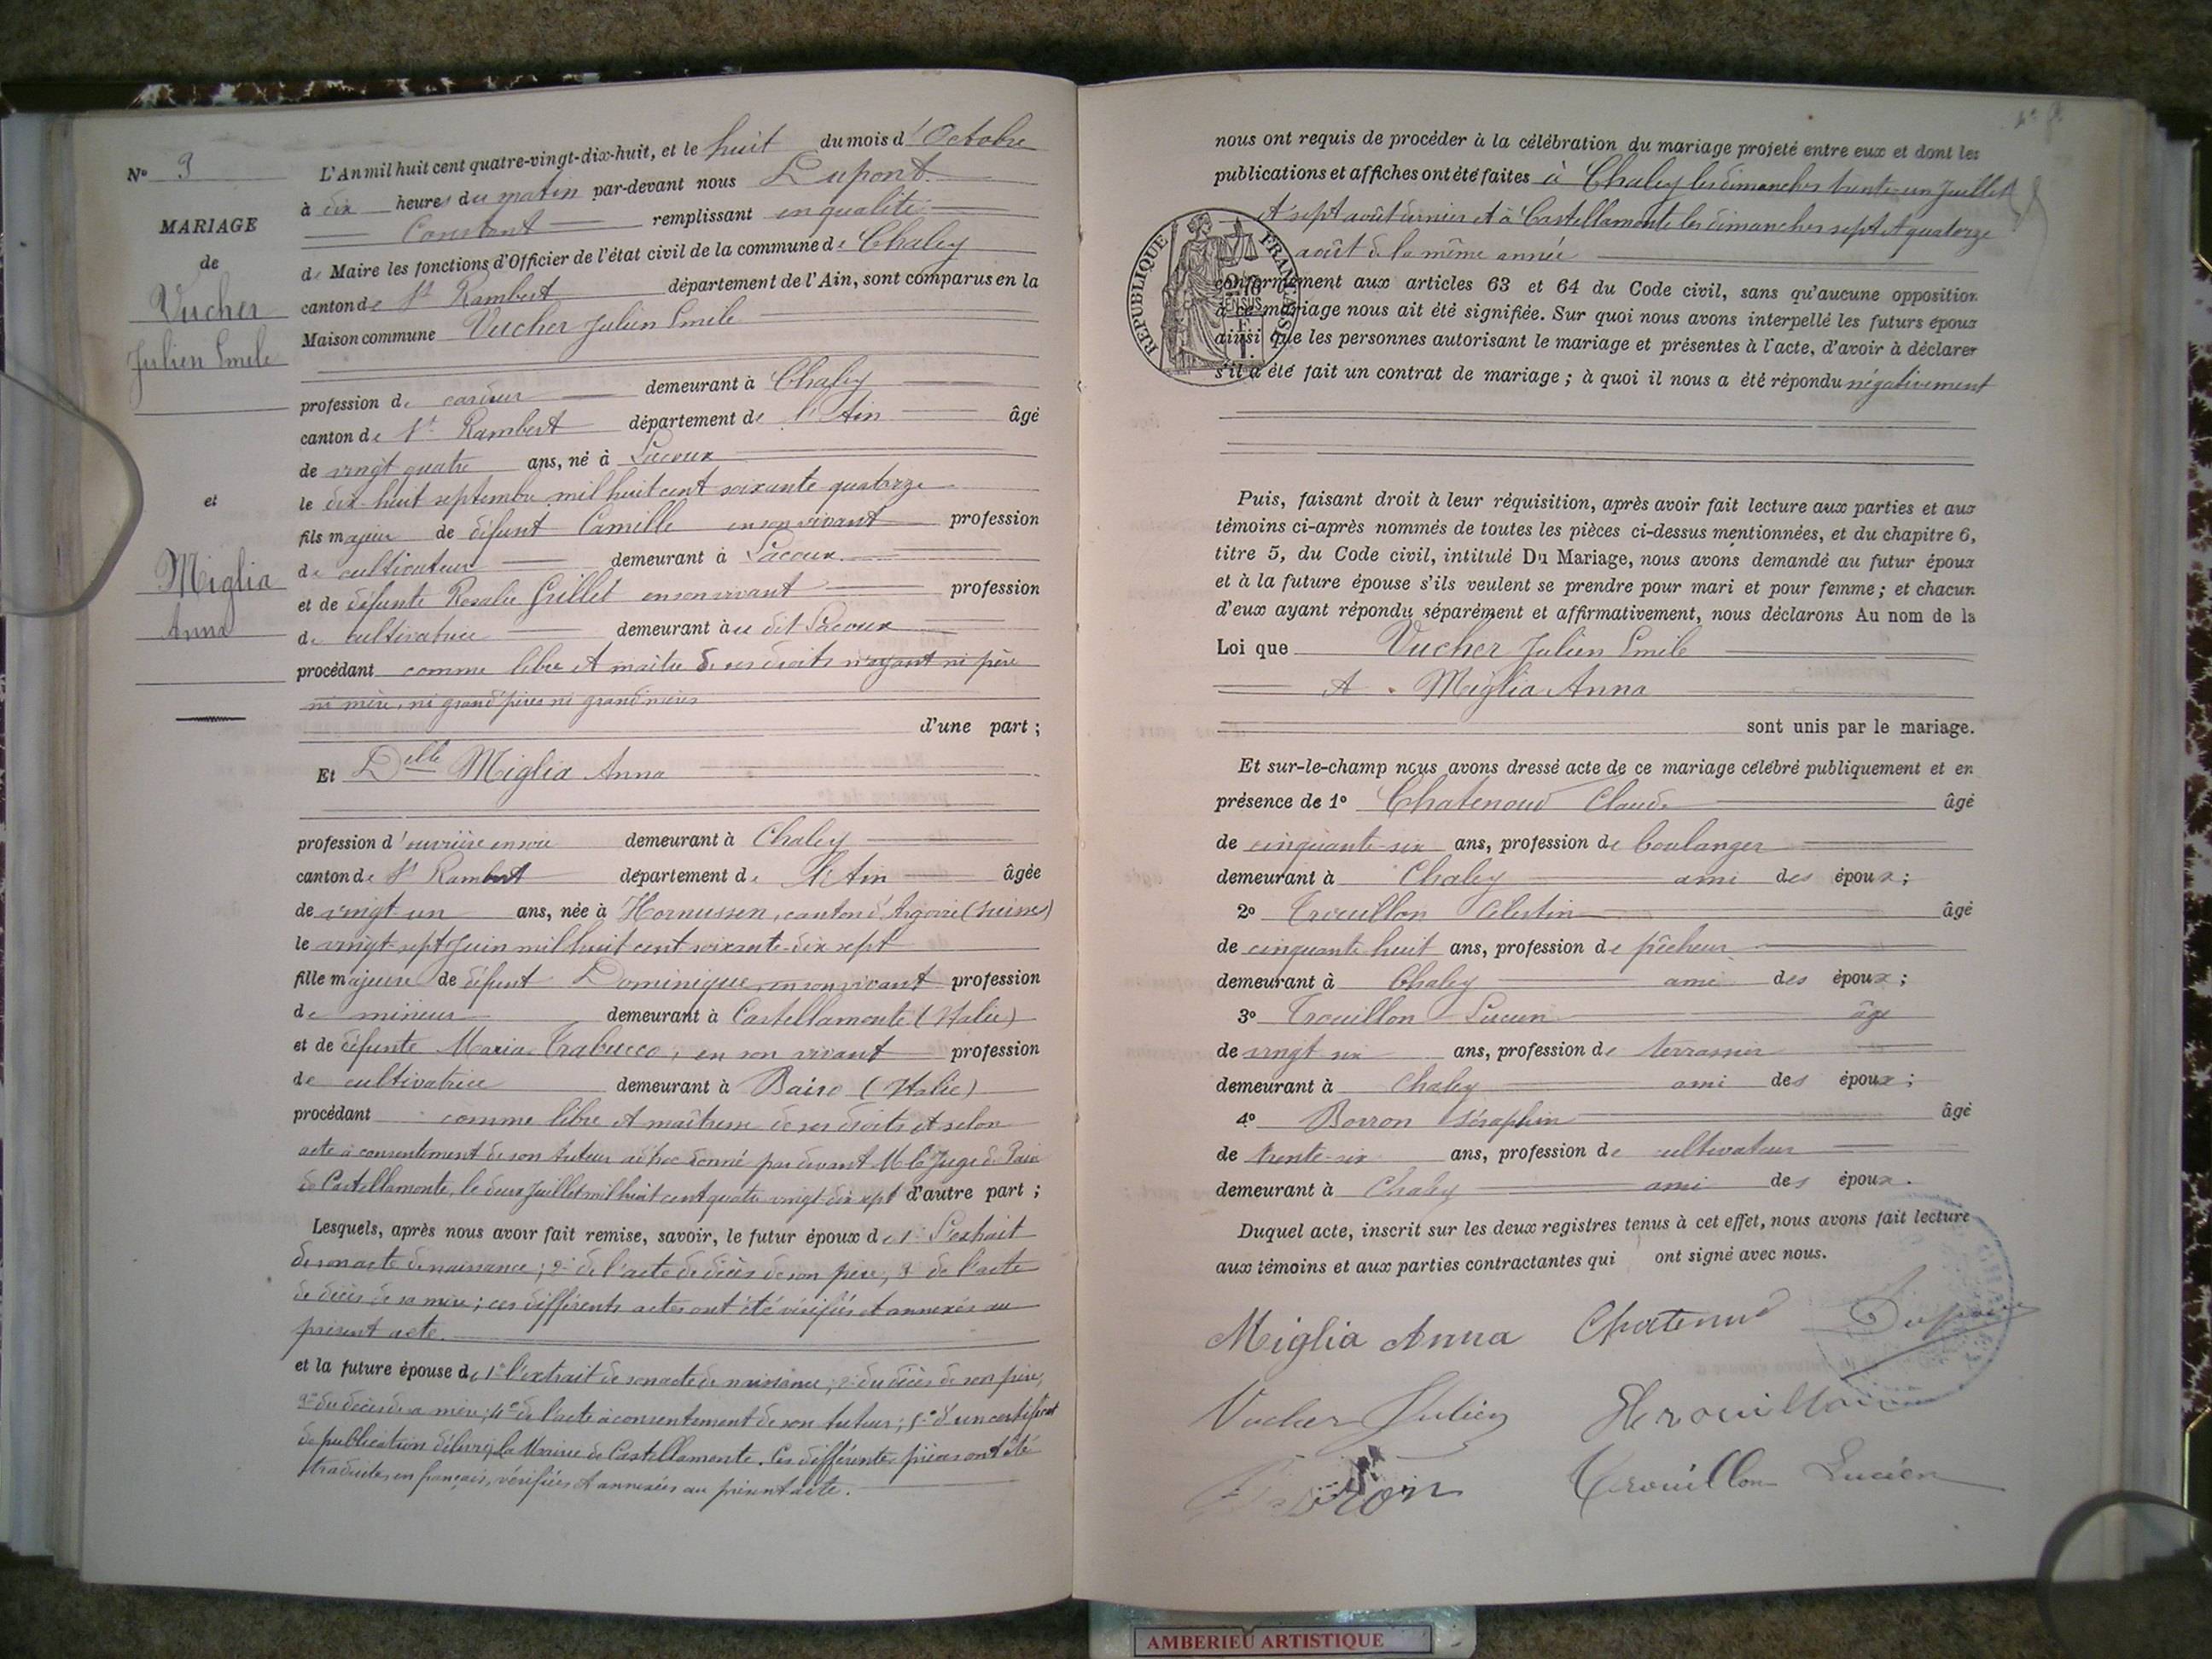 N° 9
MARIAGE
de
Vucher
Julien Emile
et
Miglia
Anna
L'An mil huit cent quatre-vingt-dix-huit, et le huit du mois d'Octobre
à dix heures du matin par-devant nous Dupont
Constant remplissant en qualité
de Maire les fonctions d'Officier de l'état civil de la commune de Chaley
canton de St Rambert département de l'Ain, sont comparus en la
Maison commune Vucher Julien Emile
profession de cardeur demeurant à Chaley
canton de St Rambert département de l'Ain âgé
de vingt quatre ans, né à Lacoux
le dix-huit septembre mil huit cent soixante quatorze
fils majeur de défunt Camille en son vivant profession
de cultivateur demeurant à Lacoux
et de défunte Rosalie Grillet en son vivant profession
de cultivatrice demeurant au dit Lacoux
procédant comme libre et maître de ses droits n'ayant ni père
ni mère, ni grand'pères ni grand'mères
d'une part ;
Et Delle Miglia Anna
profession d'ouvrière en soie demeurant à Chaley
canton de St Rambert département de l'Ain âgée
de vingt-un ans, née à Hornussen, canton d'Argovie (Suisse)
le vingt-sept Juin mil huit cent soixante-dix sept
fille majeure de défunt Dominique, en son vivant profession
de mineur demeurant à Castellamonte (Italie)
et de défunte Maria Trabucco, en son vivant profession
de cultivatrice demeurant à Bairo (Italie)
procédant comme libre et maîtresse de ses droits et selon
acte à consentement de son tuteur ad hoc donné par devant M. le Juge de Paix
de Castellamonte, le deux Juillet mil huit cent quatre vingt dix sept d'autre part ;
Lesquels, après nous avoir fait remise, savoir, le futur époux de 1° L'extrait
de son acte de naissance ; 2° de l'acte de décès de son père, 3° de l'acte
de décès de sa mère ; ces différents actes ont été vérifiés et annexés au
présent acte.
et la future épouse de 1° l'extrait de son acte de naissance ; 2° du décès de son père,
3° du décès de sa mère ; 4° de l'acte à consentement de son tuteur ; 5° d'un certificat
de publication délivré la Mairie de Castellamonte. Ces différentes pièces ont été
traduites en français, vérifiées et annexées au présent acte.
nous ont requis de procéder à la célébration du mariage projeté entre eux et dont les
publications et affiches ont été faites à Chaley les dimanches trente-un Juillet
et sept août dernier et à Castellamonte les dimanches sept et quatorze
août de la même année
RÉPUBLIQUE FRANÇAISE
conformément aux articles 63 et 64 du Code civil, sans qu'aucune opposition
à ce mariage nous ait été signifiée. Sur quoi nous avons interpellé les futurs époux
ainsi que les personnes autorisant le mariage et présentes à l'acte, d'avoir à déclarer
s'il a été fait un contrat de mariage ; à quoi il nous a été répondu négativement
Puis, faisant droit à leur réquisition, après avoir fait lecture aux parties et aux
témoins ci-après nommés de toutes les pièces ci-dessus mentionnées, et du chapitre 6,
titre 5, du Code civil, intitulé Du Mariage, nous avons demandé au futur époux
et à la future épouse s'ils veulent se prendre pour mari et pour femme ; et chacun
d'eux ayant répondu séparément et affirmativement, nous déclarons Au nom de la
Loi que Vucher Julien Emile
et Miglia Anna
sont unis par le mariage.
Et sur-le-champ nous avons dressé acte de ce mariage célébré publiquement et en
présence de 1° Chatenoud Claude âgé
de cinquante-six ans, profession de boulanger
demeurant à Chaley ami des époux ;
2° Trouillon Célestin âgé
de cinquante huit ans, profession de pêcheur
demeurant à Chaley ami des époux ;
3° Trouillon Lucien âgé
de vingt six ans, profession de terrassier
demeurant à Chaley ami des époux ;
4° Borron Séraphin âgé
de trente-six ans, profession de cultivateur
demeurant à Chaley ami des époux.
Duquel acte, inscrit sur les deux registres tenus à cet effet, nous avons fait lecture
aux témoins et aux parties contractantes qui ont signé avec nous.
Miglia Anna Chatenoud Dupont
Vucher Julien Trouillon
Trouillon Lucien
AMBERIEU ARTISTIQUE